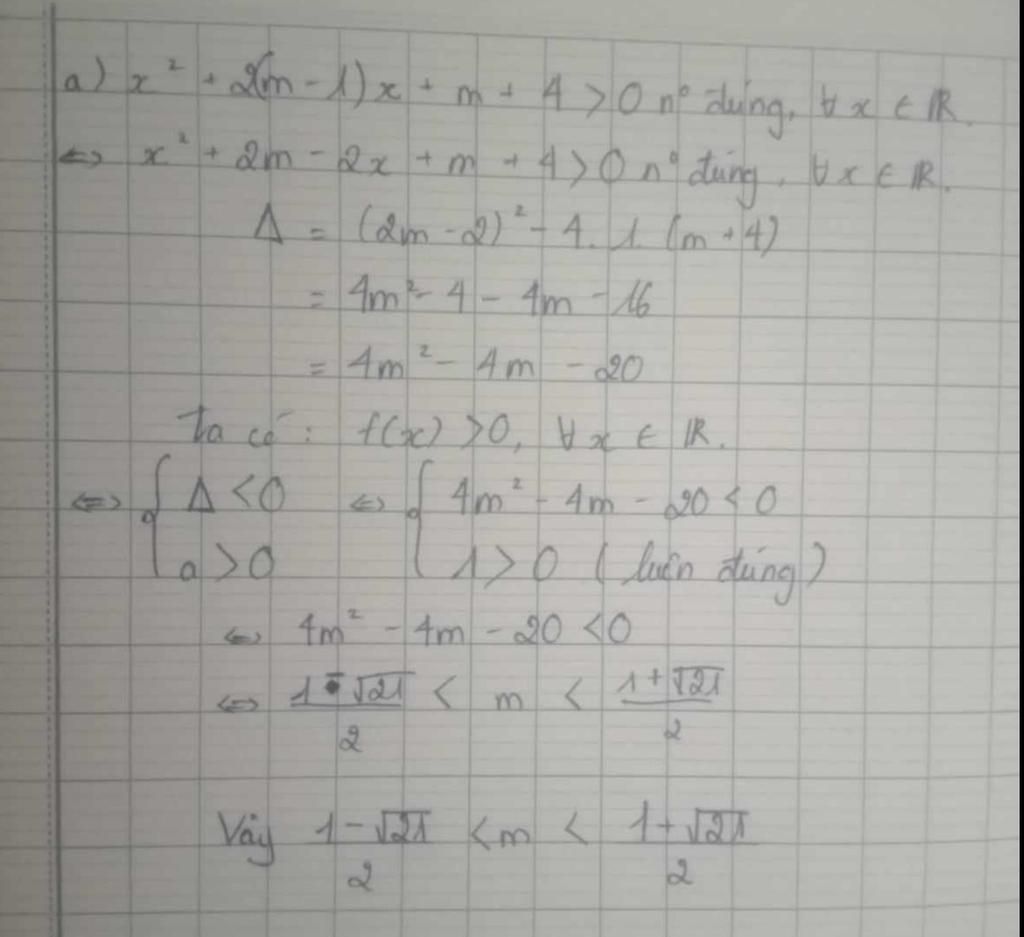 a) x² + 2(m - 1)x + m + 4 > 0 n° đúng, ∀ x ∈ ℝ.
⇔ x² + 2m - 2x + m + 4 > 0 n° đúng, ∀ x ∈ ℝ.
Δ = (2m - 2)² - 4. 1. (m + 4)
= 4m² - 4 - 4m - 16
= 4m² - 4m - 20
Ta có : f(x) > 0, ∀ x ∈ ℝ.
⇔ { Δ < 0 ⇔ { 4m² - 4m - 20 < 0
a > 0 1 > 0 ( luôn đúng )
⇔ 4m² - 4m - 20 < 0
⇔ (1 - √21)/2 < m < (1 + √21)/2
Vậy (1 - √21)/2 < m < (1 + √21)/2